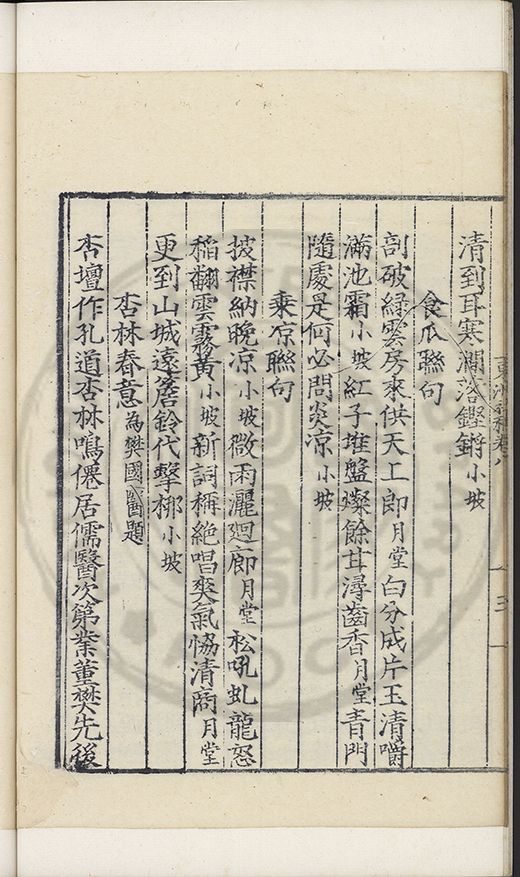 清到耳寒澗落鏗鏘小坡
食瓜聯句
剖破綠雲房來供天上郎月堂白分成片玉清嚼
滿池霜小坡紅子堆盤燦餘甘潯齒香月堂青門
隨處是何必問炎凉小坡
乘凉聯句
披襟納晚凉小坡微雨灑迴廊月堂松吼虬龍怒
稻翻雲霧黃小坡新詞稱絕唱爽氣恊清商月堂
更到山城遠簷鈴代擊柳小坡
杏林春意為樊國醫題
杏壇作孔道杏林鳴僊居儒醫次第業董樊先後